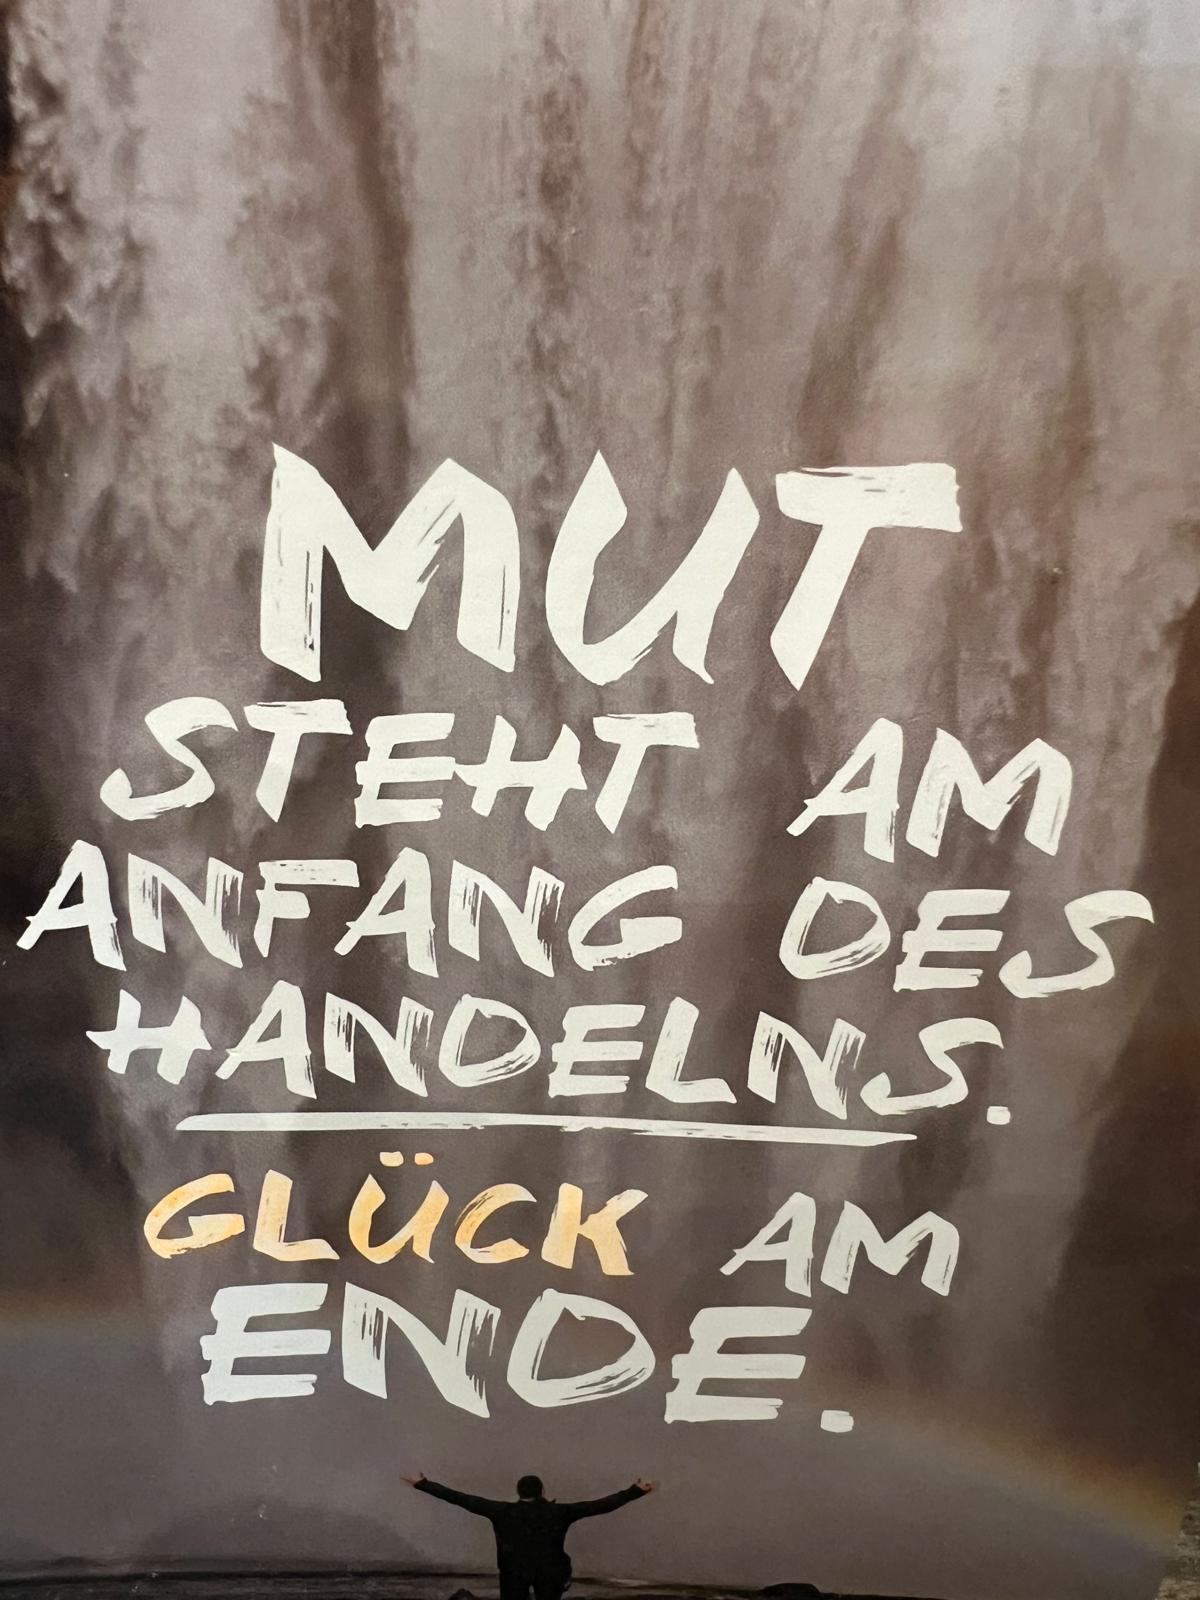 MUT
STEHT AM
ANFANG DES
HANDELNS.
GLÜCK AM
ENDE.